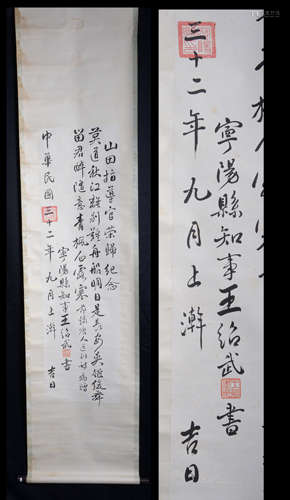 山田指導官榮歸紀念
莫道秋江離別難舟船明日是長安吳姬緩舞
留君醉隨意青楓白露寒
寧陽縣知事王紹武書
中華民國三十二年九月上澣 吉日
三十二年九月上澣 吉日
寧陽縣知事王紹武書